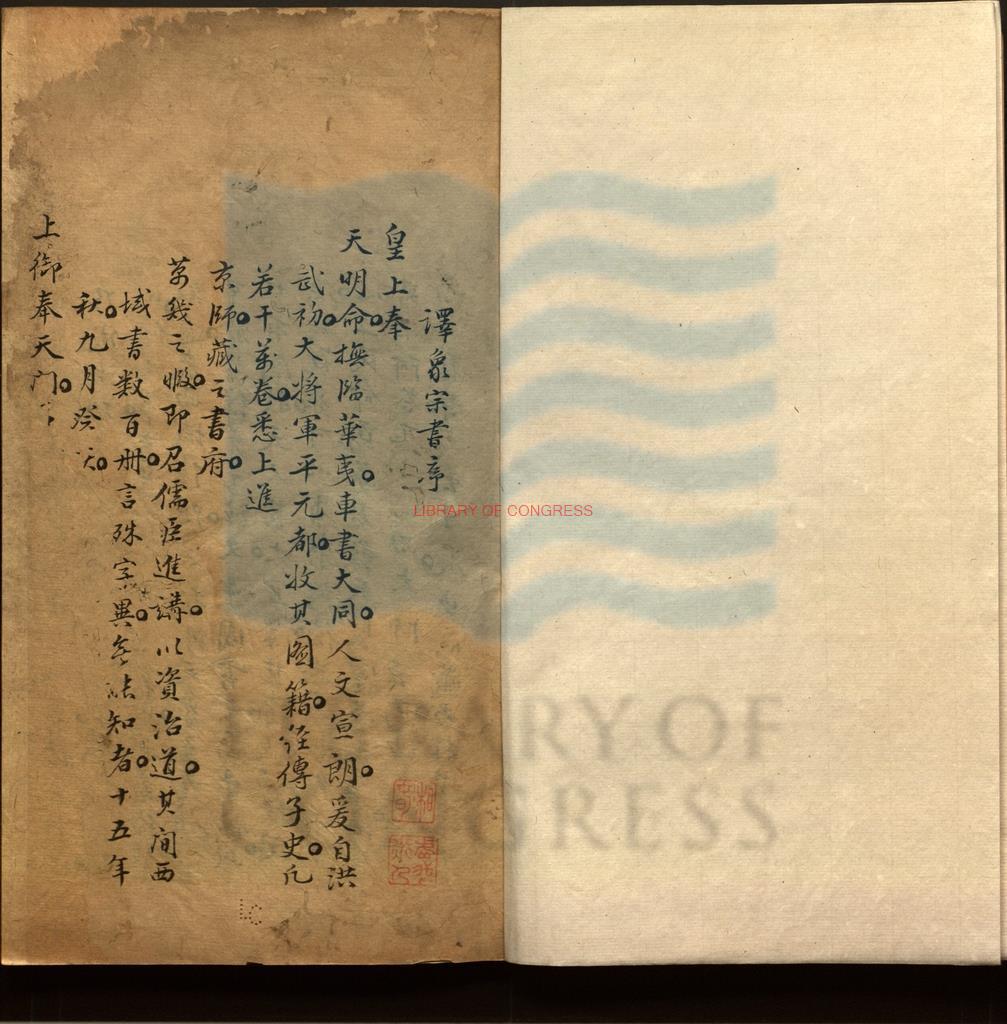 譯象宗書序
皇上奉
天明命。撫臨華夷。車書大同。人文宣朗。爰自洪
武初。大將軍平元都。收其圖籍。經傳子史。凡
若干萬卷。悉上進
京師。藏之書府。
萬幾之暇。即召儒臣進講。以資治道。其間西
域書数百冊。言殊字異。無能知者。十五年
秋。九月癸
上御奉天門。
LIBRARY OF CONGRESS